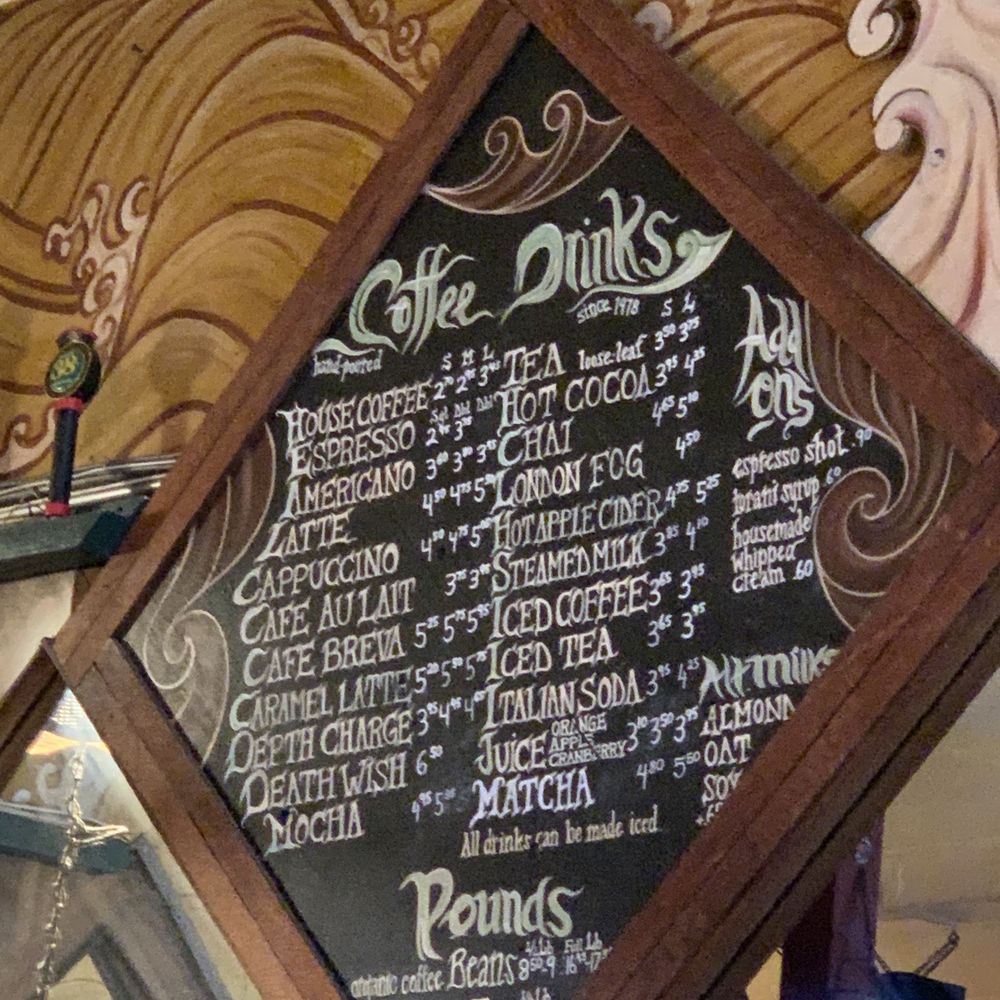 Coffee Drinks
since 1978
hand-poured
S M L
HOUSE COFFEE
ESPRESSO
AMERICANO
LATTE
CAPPUCCINO
CAFE AU LAIT
CAFE BREVA
CARAMEL LATTE
DEPTH CHARGE
DEATH WISH 6.50
MOCHA
S L
TEA loose-leaf 3.50 3.75
HOT COCOA 3.95 4.35
CHAI 4.65 5.10
LONDON FOG 4.50
HOT APPLE CIDER 4.75 5.25
STEAMED MILK 3.85 4.10
ICED COFFEE 3.65 3.95
ICED TEA 3.65 3.95
ITALIAN SODA 3.95 4.25
JUICE ORANGE
APPLE
CRANBERRY 3.10 3.50 3.95
MATCHA 4.80 5.50
All drinks can be made iced
Add
ons
espresso shot .90
torani syrup .60
housemade
whipped
cream .60
ALMOND
OAT
SOY
Pounds
organic coffee Beans
½ Lb Full Lb